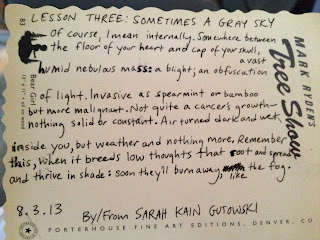 LESSON THREE: SOMETIMES A GRAY SKY
Of course, I mean internally. Somewhere between
the floor of your heart and cap of your skull,
a vast
humid nebulous mass: a blight; an obfuscation
of light. Invasive as spearmint or bamboo
but more malignant. Not quite a cancer's growth—
nothing solid or constant. Air turned dark and wet
inside you, but weather and nothing more. Remember
this, when it breeds low thoughts that root and spread
and thrive in shade: soon they'll burn away
like the fog.
8.3.13 BY/FROM SARAH KAIN GUTOWSKI
PORTERHOUSE FINE ART EDITIONS, DENVER, CO
MARK RYDEN'S
Tree Show
83
Bear Girl